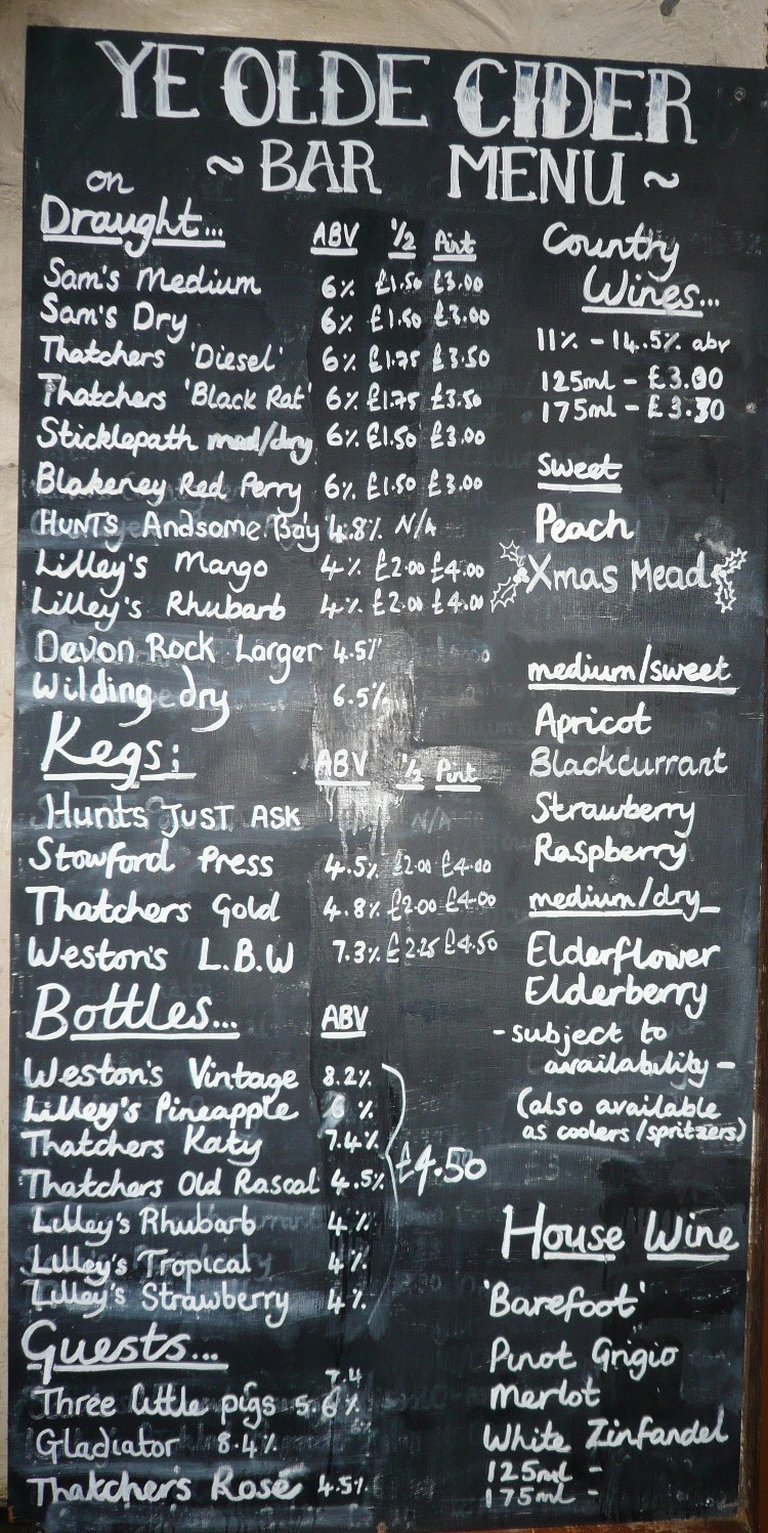 YE OLDE CIDER
~ BAR MENU ~
on
Draught... ABV ½ Pint
Sam's Medium 6% £1.50 £3.00
Sam's Dry 6% £1.50 £3.00
Thatchers 'Diesel' 6% £1.75 £3.50
Thatchers 'Black Rat' 6% £1.75 £3.50
Sticklepath med/dry 6% £1.50 £3.00
Blakeney Red Perry 6% £1.50 £3.00
HUNTS Andsome Bay 4.8% N/A
Lilley's Mango 4% £2.00 £4.00
Lilley's Rhubarb 4% £2.00 £4.00
Devon Rock Larger 4.5%
Wilding dry 6.5%
Kegs: ABV ½ Pint
Hunts JUST ASK N/A
Stowford Press 4.5% £2.00 £4.00
Thatchers Gold 4.8% £2.00 £4.00
Weston's L.B.W 7.3% £2.25 £4.50
Bottles... ABV
Weston's Vintage 8.2%
Lilley's Pineapple 6 %
Thatchers Katy 7.4%
£4.50
Thatchers Old Rascal 4.5%
Lilley's Rhubarb 4%
Lilley's Tropical 4%
Lilley's Strawberry 4%
Guests...
7.4
Three little pigs 5.6%
Gladiator 8.4%
Thatcher's Rosé 4.5%
Country
Wines...
11% - 14.5% abv
125ml - £3.00
175ml - £3.30
Sweet
Peach
Xmas Mead
medium/sweet
Apricot
Blackcurrant
Strawberry
Raspberry
medium/dry
Elderflower
Elderberry
- subject to
availability -
(also available
as coolers/spritzers)
House Wine
'Barefoot'
Pinot Grigio
Merlot
White Zinfandel
125ml -
175ml -